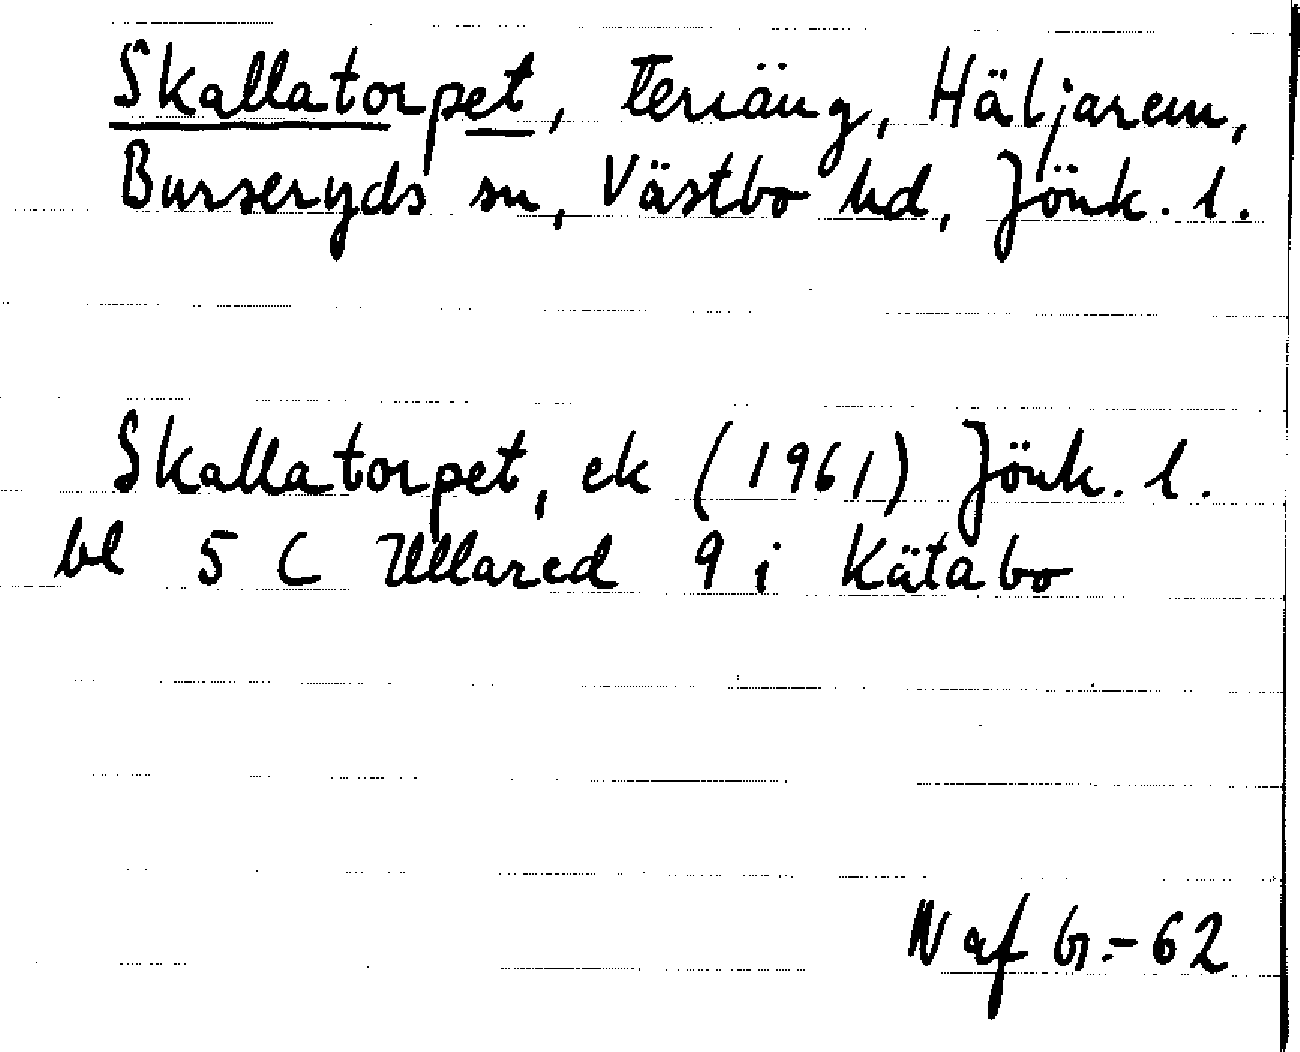 Skallatorpet, Teriäng, Häljarem,
Burseryds sn, Västbo hd, Jönk. l.
Skallatorpet, ek (1961) Jönk. l.
bl 5 C Ullared 9 i Kätabo
N af G:-62